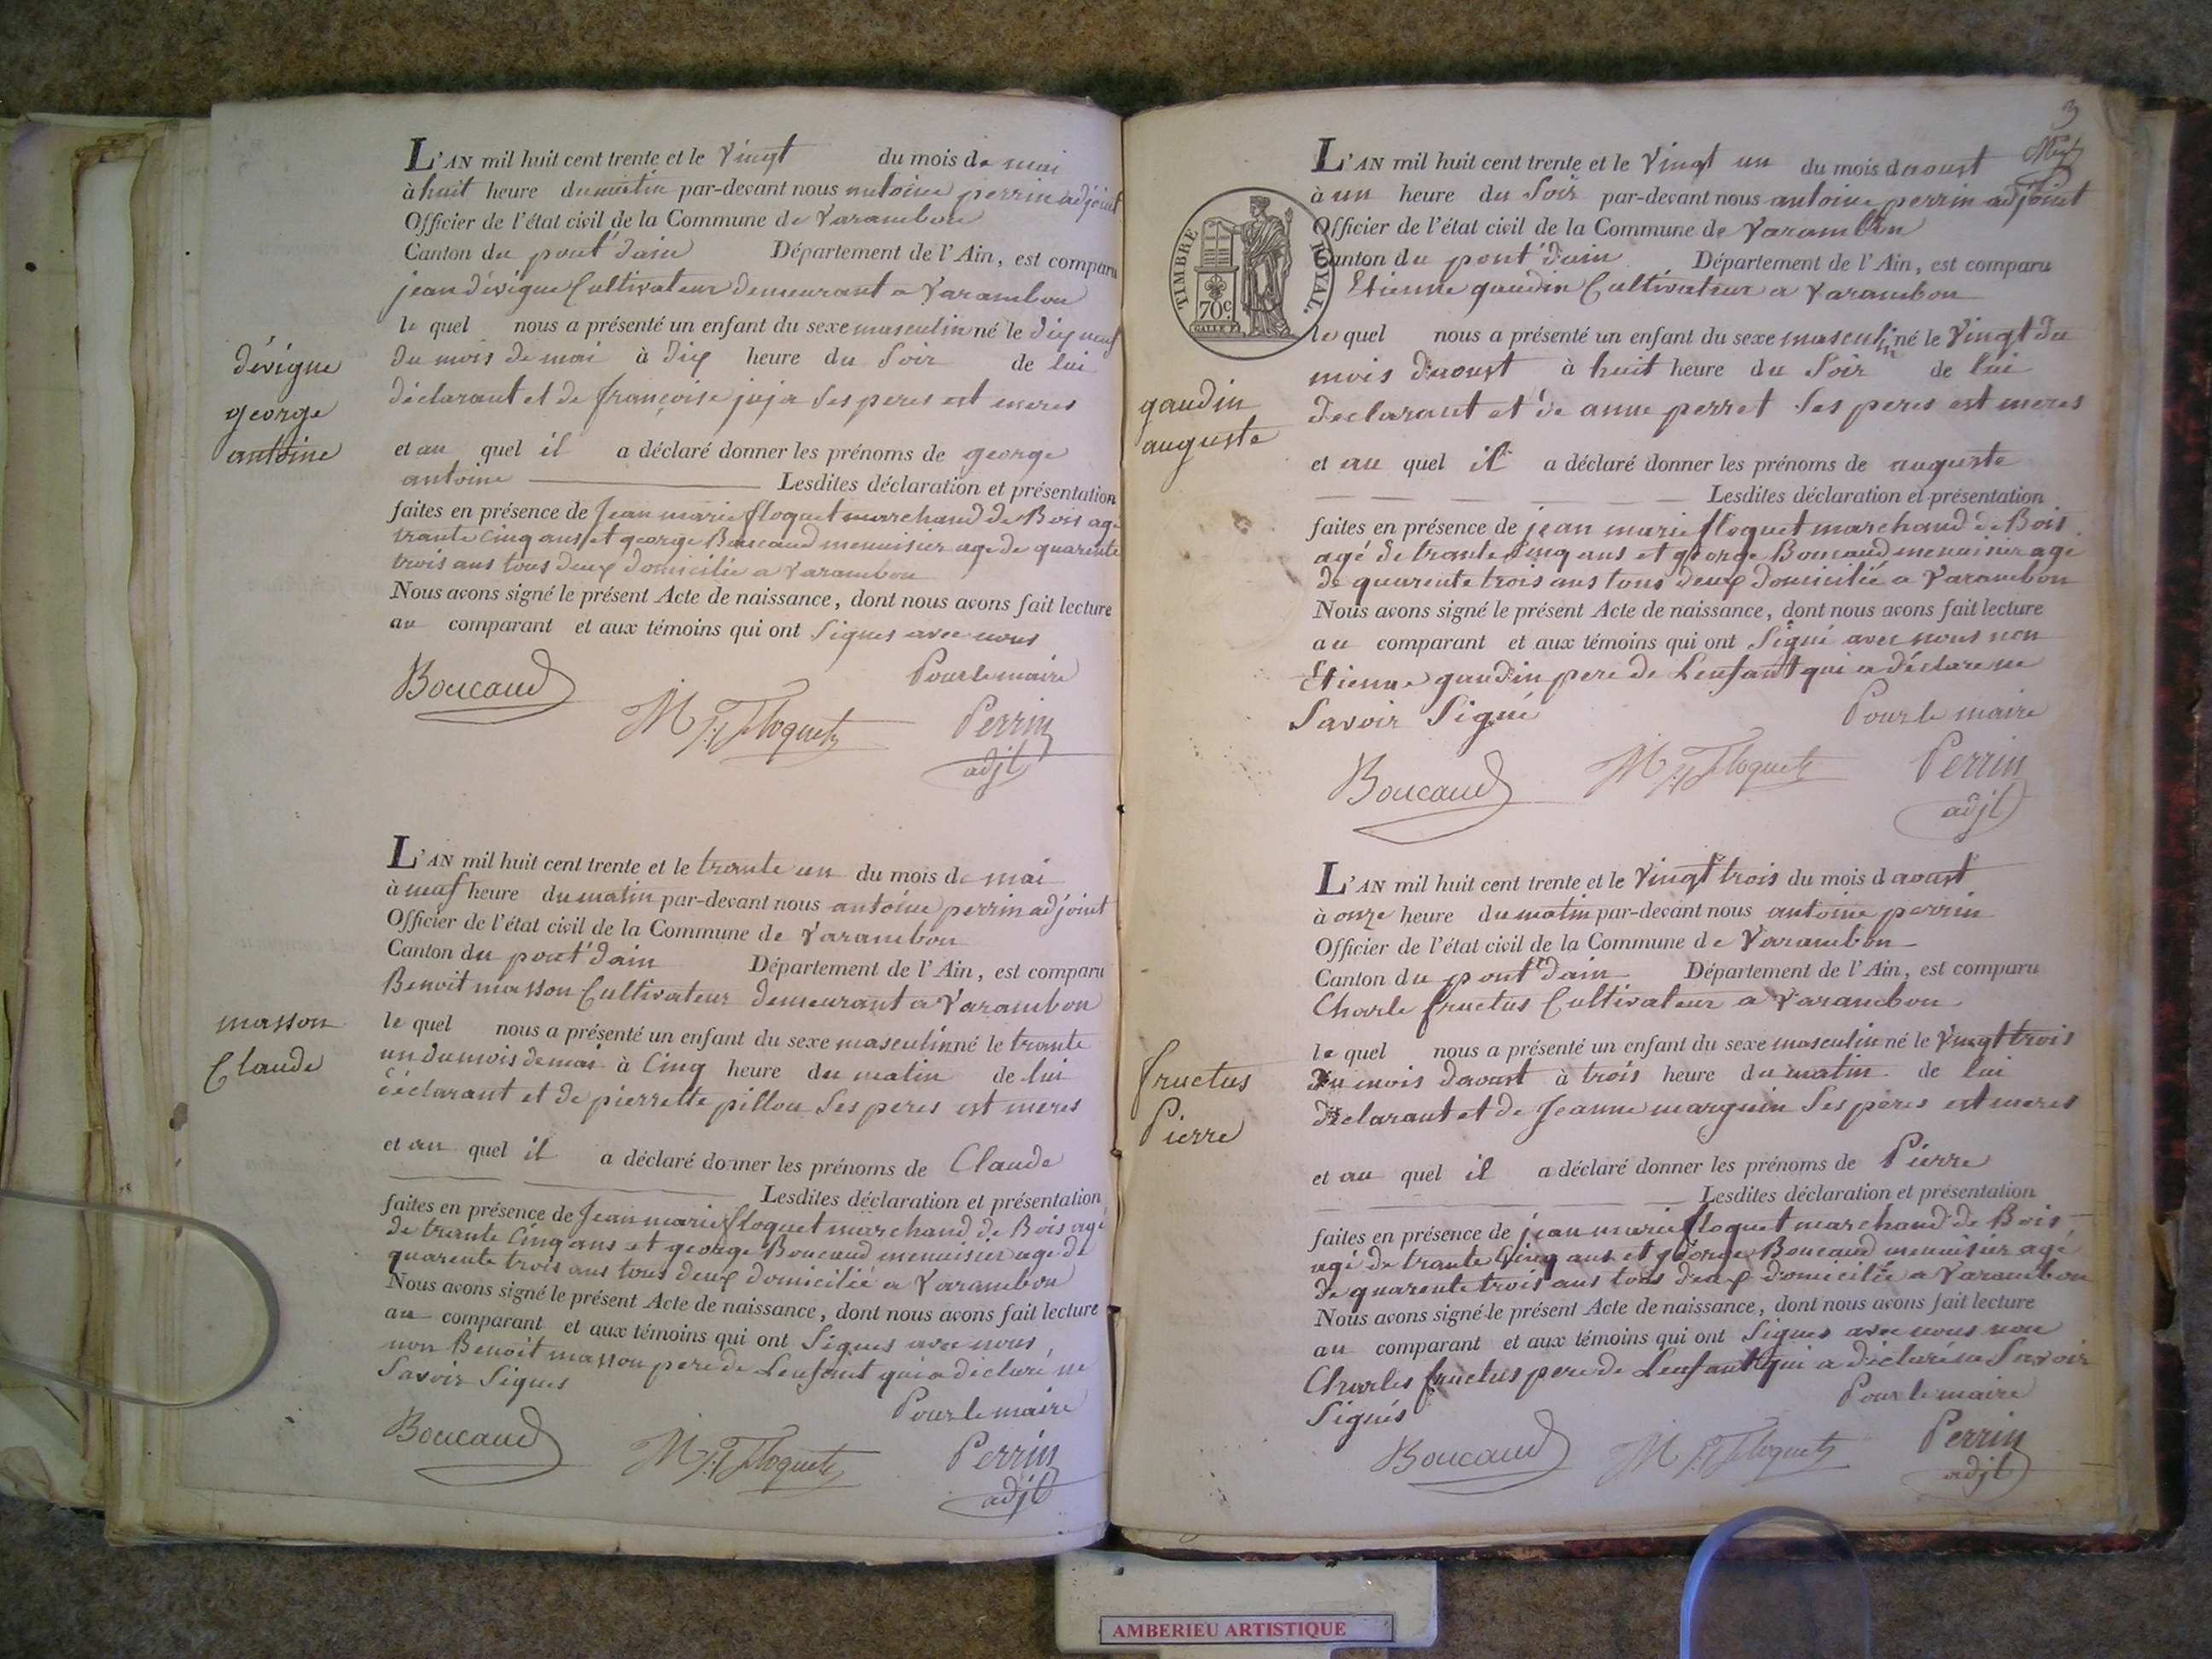 L'AN mil huit cent trente et le Vingt du mois de mai
à huit heure du matin par-devant nous antoine perrin adjoint
Officier de l'état civil de la Commune de Varambon
Canton du pont d'ain Département de l'Ain, est comparu
jean dévigne Cultivateur demeurant a Varambon
le quel nous a présenté un enfant du sexe masculin né le dix neuf
du mois de mai à dix heure du Soir de lui
déclarant et de françoise juja Ses peres est meres
dévigne
george
antoine
et au quel il a déclaré donner les prénoms de george
antoine Lesdites déclaration et présentation
faites en présence de Jean marie floquet marchand de Bois agé
trante Cinq ans et george Boucaud menuisier age de quarente
trois ans tous deux domicilié a Varambon
Nous avons signé le présent Acte de naissance, dont nous avons fait lecture
au comparant et aux témoins qui ont Signes avec nous
Pour le maire
Boucaud M Floquet Perrin
adjt
L'AN mil huit cent trente et le trante un du mois de mai
à neuf heure du matin par-devant nous antoine perrin adjoint
Officier de l'état civil de la Commune de Varambon
Canton du pont d'ain Département de l'Ain, est comparu
Benoit masson Cultivateur demeurant a Varambon
le quel nous a présenté un enfant du sexe masculin né le trante
un du mois de mai à Cinq heure du matin de lui
déclarant et de pierrette pillou Ses peres est meres
masson
Claude
et au quel il a déclaré donner les prénoms de Claude
Lesdites déclaration et présentation
faites en présence de Jean marie floquet marchand de Bois agé
de trante Cinq ans et george Boucaud menuisier age de
quarente trois ans tous deux domicilié a Varambon
Nous avons signé le présent Acte de naissance, dont nous avons fait lecture
au comparant et aux témoins qui ont Signes avec nous
non Benoit masson pere de Lenfant qui a déclaré ne
Savoir Signes
Pour le maire
Boucaud M Floquet Perrin
adjt
3
TIMBRE ROYAL
70c
L'AN mil huit cent trente et le Vingt un du mois daoust
à un heure du Soir par-devant nous antoine perrin adjoint
Officier de l'état civil de la Commune de Varambon
Canton du pont d'ain Département de l'Ain, est comparu
Etienne gaudin Cultivateur a Varambon
le quel nous a présenté un enfant du sexe masculin né le Vingt du
mois daoust à huit heure du Soir de lui
declarant et de anne perret Ses peres est meres
gaudin
auguste
et au quel il a déclaré donner les prénoms de auguste
Lesdites déclaration et présentation
faites en présence de jean marie floquet marchand de Bois
agé de trante Cinq ans et george Boucaud menuisier agé
de quarente trois ans tous deux domicilié a Varambon
Nous avons signé le présent Acte de naissance, dont nous avons fait lecture
au comparant et aux témoins qui ont Signé avec nous non
Etienne gaudin pere de Lenfant qui a déclare ne
Savoir Signé
Pour le maire
Boucaud M Floquet Perrin
adjt
L'AN mil huit cent trente et le Vingt trois du mois daoust
à onze heure du matin par-devant nous antoine perrin
Officier de l'état civil de la Commune de Varambon
Canton du pont d'ain Département de l'Ain, est comparu
Charle fructus Cultivateur a Varambon
le quel nous a présenté un enfant du sexe masculin né le Vingt trois
du mois daoust à trois heure du matin de lui
declarant et de Jeanne marguin Ses peres est meres
fructus
Pierre
et au quel il a déclaré donner les prénoms de Pierre
Lesdites déclaration et présentation
faites en présence de jean marie floquet marchand de Bois
agé de trante Cinq ans et george Boucaud menuisier agé
de quarente trois ans tous deux domicilié a Varambon
Nous avons signé le présent Acte de naissance, dont nous avons fait lecture
au comparant et aux témoins qui ont Signes avec nous non
Charles fructus pere de Lenfant qui a déclaré ne Savoir
Signés
Pour le maire
Boucaud M Floquet Perrin
adjt
AMBERIEU ARTISTIQUE